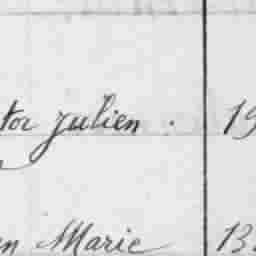 tor Julien . 19
en Marie 13